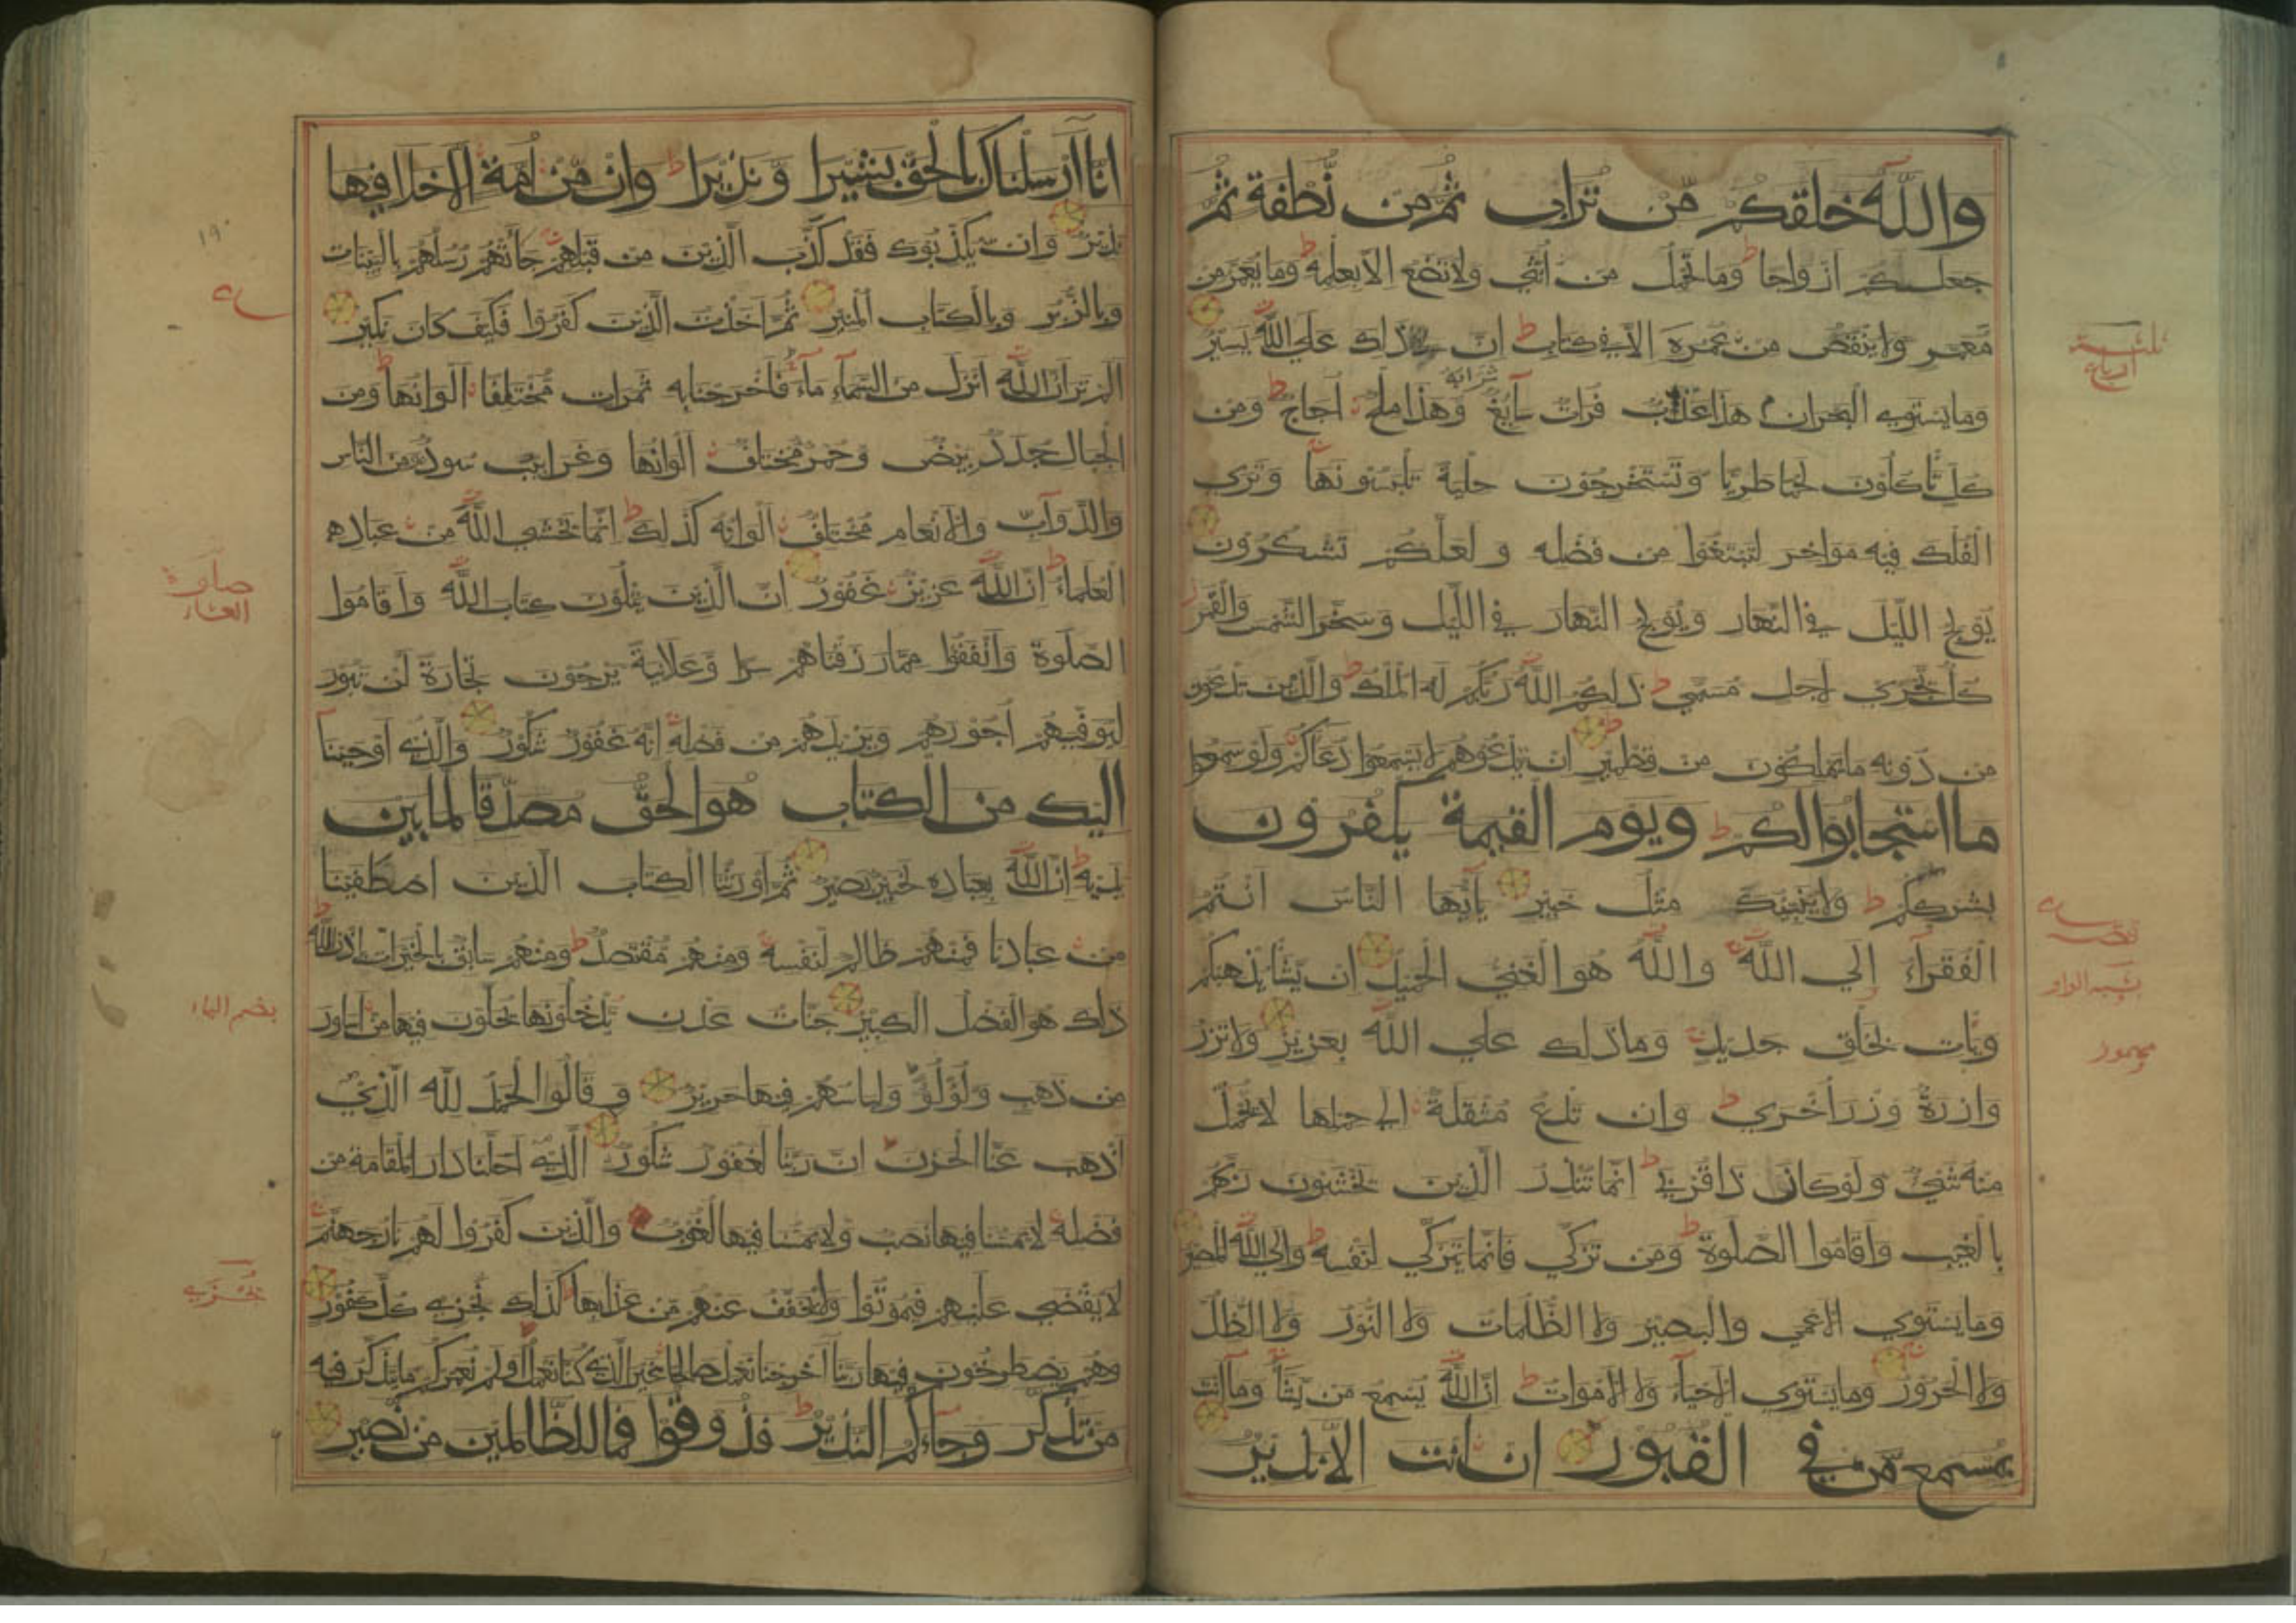 والله خلقكم من تراب ثم من نطفة ثم
جعلكم ازواجا وما تحمل من انثي ولا تضع الا بعلمه وما يعمر من
معمر ولا ينقص من عمره الا في كتاب ان ذلك علي الله يسير
وما يستوي البحران هذا عذب فرات سايغ شرابه وهذا ملح اجاج ومن
كل تاكلون لحما طريا وتستخرجون حلية تلبسونها وتري
الفلك فيه مواخر لتبتغوا من فضله ولعلكم تشكرون
يولج الليل في النهار ويولج النهار في الليل وسخر الشمس والقمر
كل يجري لاجل مسمي ذلكم الله ربكم له الملك والذين تدعون
من دونه ما يملكون من قطمير ان تدعوهم لا يسمعوا دعاكم ولو سمعوا
ما استجابوا لكم ويوم القيمة يكفرون
بشرككم ولا ينبيك مثل خبير يايها الناس انتم
الفقراء الي الله والله هو الغني الحميد ان يشا يذهبكم
ويات بخلق جديد وما ذلك علي الله بعزيز ولا تزر
وازرة وزر اخري وان تدع مثقلة الي حملها لا يحمل
منه شيء ولو كان ذا قربي انما تنذر الذين يخشون ربهم
بالغيب واقاموا الصلوة ومن تزكي فانما يتزكي لنفسه والي الله المصير
وما يستوي الاعمي والبصير ولا الظلمات ولا النور ولا الظل
ولا الحرور وما يستوي الاحياء ولا الاموات ان الله يسمع من يشا وما انت
بمسمع من في القبور ان انت الا نذير
انا ارسلناك بالحق بشيرا ونذيرا وان من امة الا خلا فيها
نذير وان يكذبوك فقد كذب الذين من قبلهم جاتهم رسلهم بالبينات
وبالزبر وبالكتاب المنير ثم اخذت الذين كفروا فكيف كان نكير
الم تر ان الله انزل من السماء ماء فاخرجنا به ثمرات مختلفا الوانها ومن
الجبال جدد بيض وحمر مختلف الوانها وغرابيب سود ومن الناس
والدواب والانعام مختلف الوانه كذلك انما يخشي الله من عباده
العلماء ان الله عزيز غفور ان الذين يتلون كتاب الله واقاموا
الصلوة وانفقوا مما رزقناهم سرا وعلانية يرجون تجارة لن تبور
ليوفيهم اجورهم ويزيدهم من فضله انه غفور شكور والذي اوحينا
اليك من الكتاب هو الحق مصدقا لما بين
يديه ان الله بعباده لخبير بصير ثم اورثنا الكتاب الذين اصطفينا
من عبادنا فمنهم ظالم لنفسه ومنهم مقتصد ومنهم سابق بالخيرات باذن الله
ذلك هو الفضل الكبير جنات عدن يدخلونها يحلون فيها من اساور
من ذهب ولؤلؤ ولباسهم فيها حرير وقالوا الحمد لله الذي
اذهب عنا الحزن ان ربنا لغفور شكور الذي احلنا دار المقامة من
فضله لا يمسنا فيها نصب ولا يمسنا فيها لغوب والذين كفروا لهم نار جهنم
لا يقضي عليهم فيموتوا ولا يخفف عنهم من عذابها كذلك نجزي كل كفور
وهم يصطرخون فيها ربنا اخرجنا نعمل صالحا غير الذي كنا نعمل اولم نعمركم ما يتذكر فيه
من تذكر وجاءكم النذير فذوقوا فما للظالمين من نصير